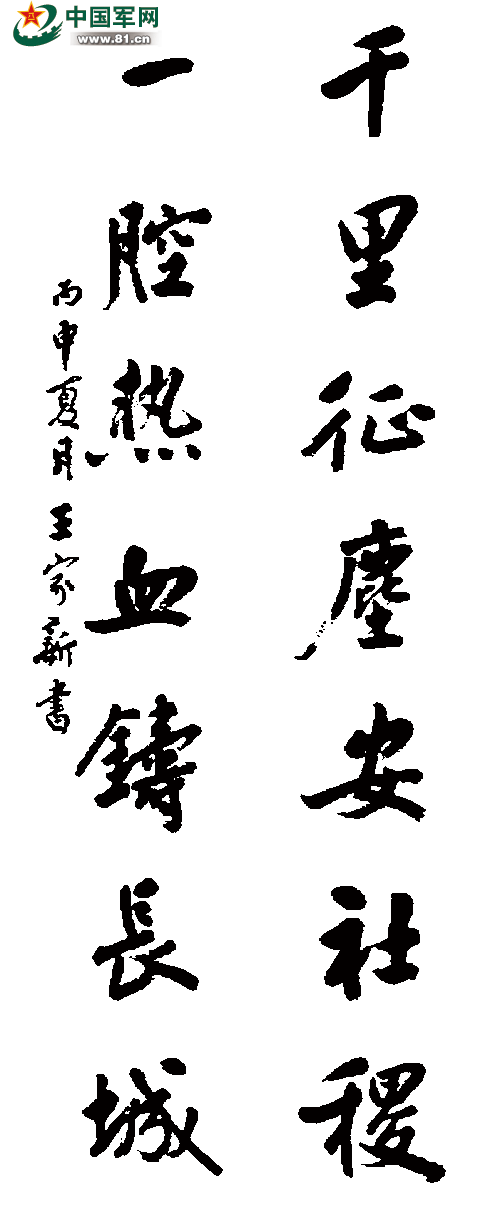 中国军网
www.81.cn
千里征塵安社稷
一腔热血鑄長城
丙申夏月王家新書